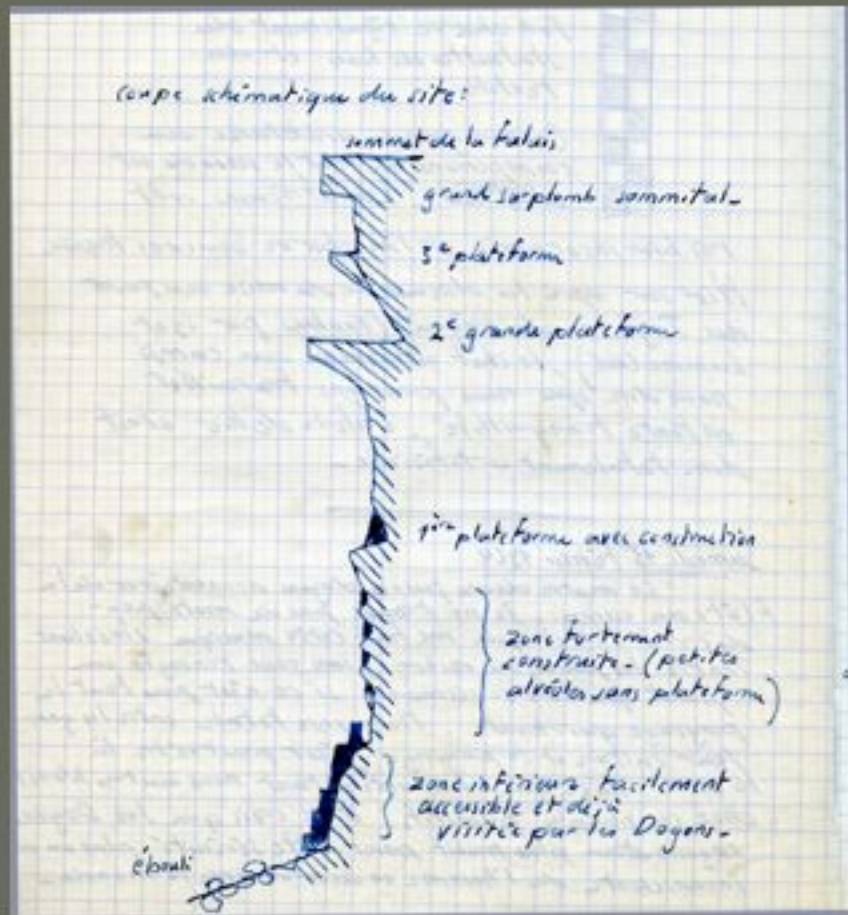 coupe schématique du site:
sommet de la falais
grand surplomb sommital-
3e plateforme
2e grande plateforme
1ère plateforme avec construction
zone fortement
construite - (petites
alvéoles sans plateforme)
zone inférieure facilement
accessible et déjà
visitée par les Dogons-
ébouli